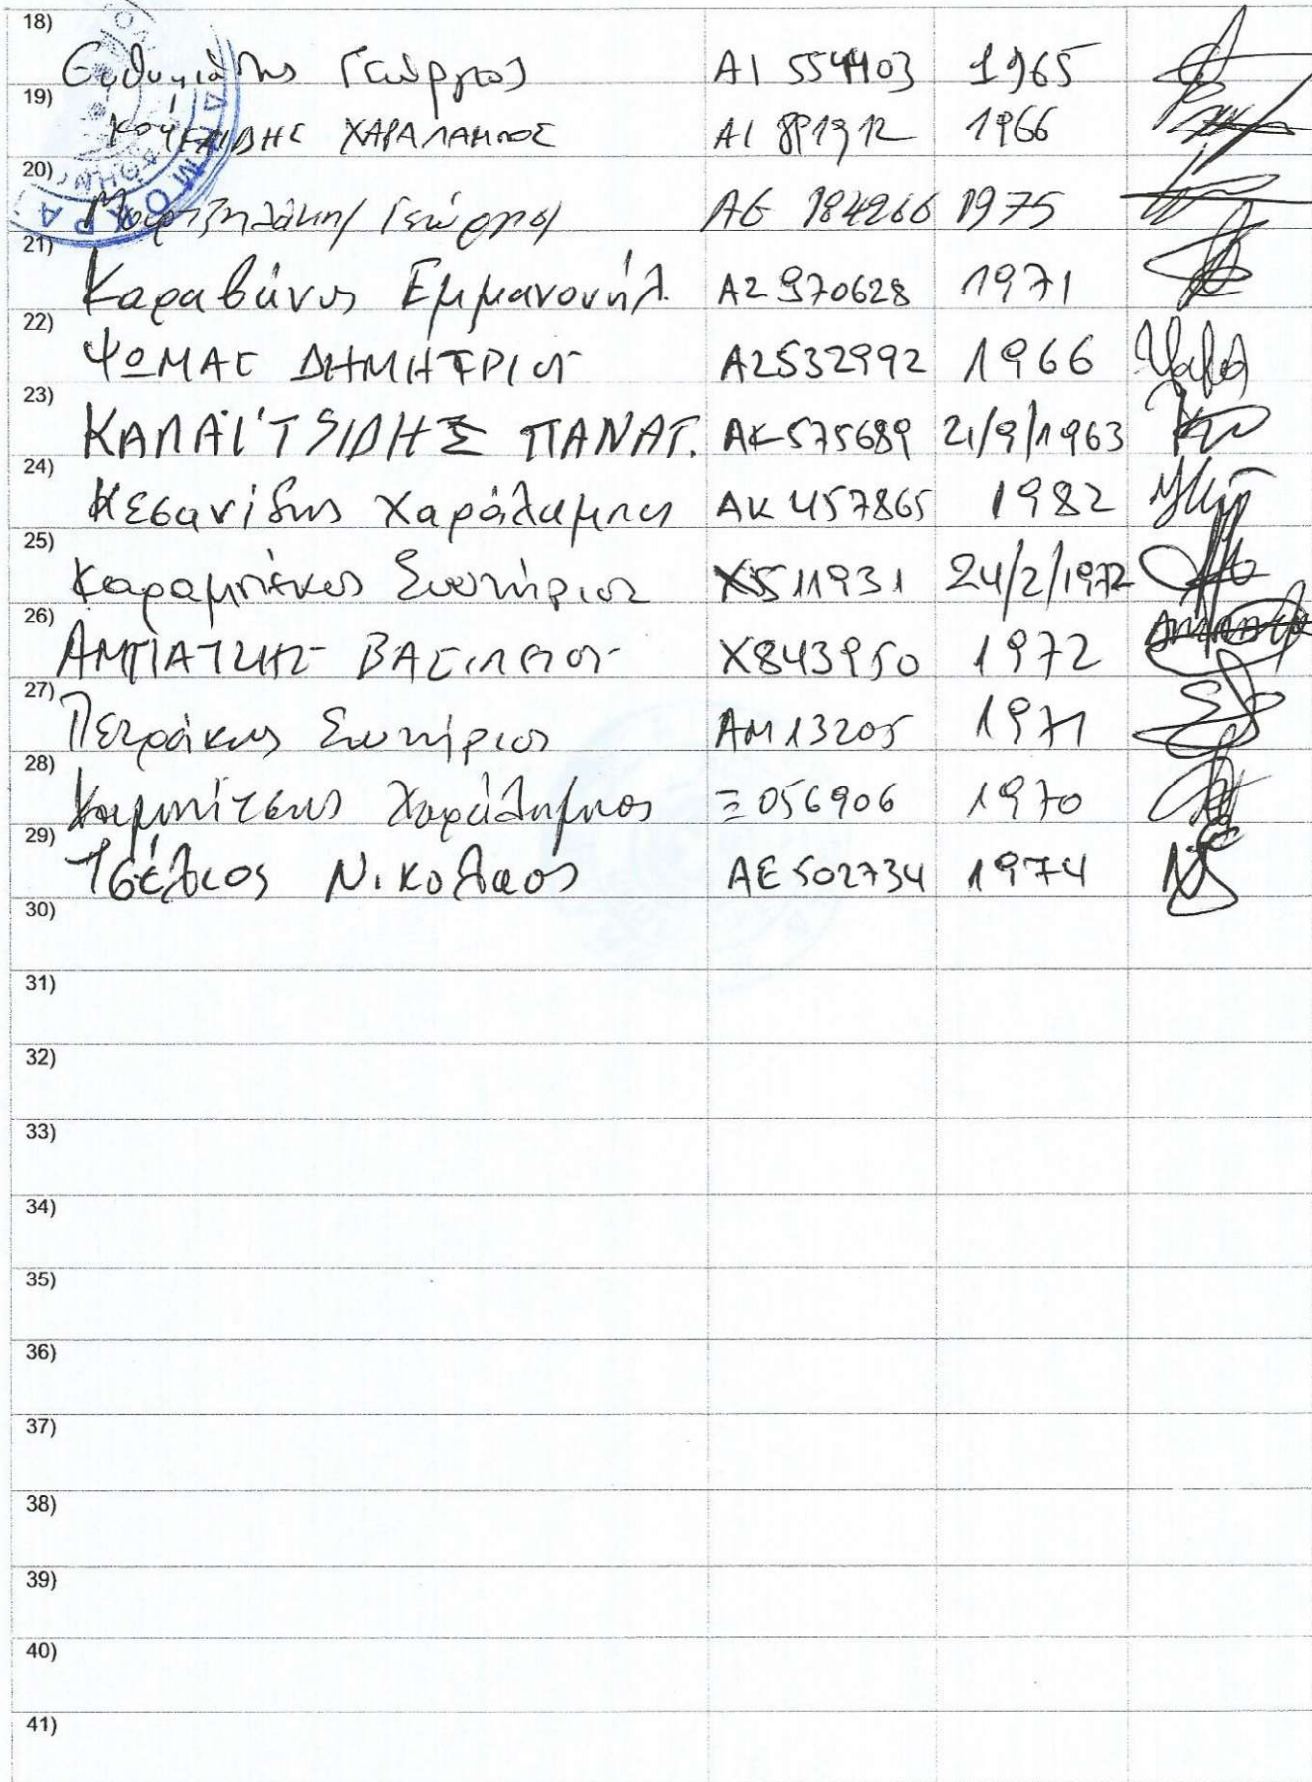 18)
Ευθυμιάδης Γεώργιος ΑΙ 554403 1965
19)
ΧΑΡΑΛΑΜΠΟΣ ΑΙ 891912 1966
20)
Γεώργιος ΑΕ 184266 1975
21)
Καραβάνης Εμμανουήλ ΑΖ 970628 1971
22)
ΨΩΜΑΣ ΔΗΜΗΤΡΙΟΣ ΑΖ532992 1966
23)
ΚΑΛΑΪΤΣΙΔΗΣ ΠΑΝΑΓ. ΑΚ 575689 21/9/1963
24)
Κεσανίδης Χαράλαμπος ΑΚ 457865 1982
25)
Καραμπέκος Σωτήριος Χ511931 24/2/1972
26)
ΑΜΠΑΤΖΗΣ ΒΑΣΙΛΕΙΟΣ Χ843950 1972
27)
Πετράκης Σωτήριος ΑΜ 13205 1971
28)
Χαράλαμπος Ξ 056906 1970
29)
Τσέλιος Νικόλαος ΑΕ 502734 1974
30)
31)
32)
33)
34)
35)
36)
37)
38)
39)
40)
41)